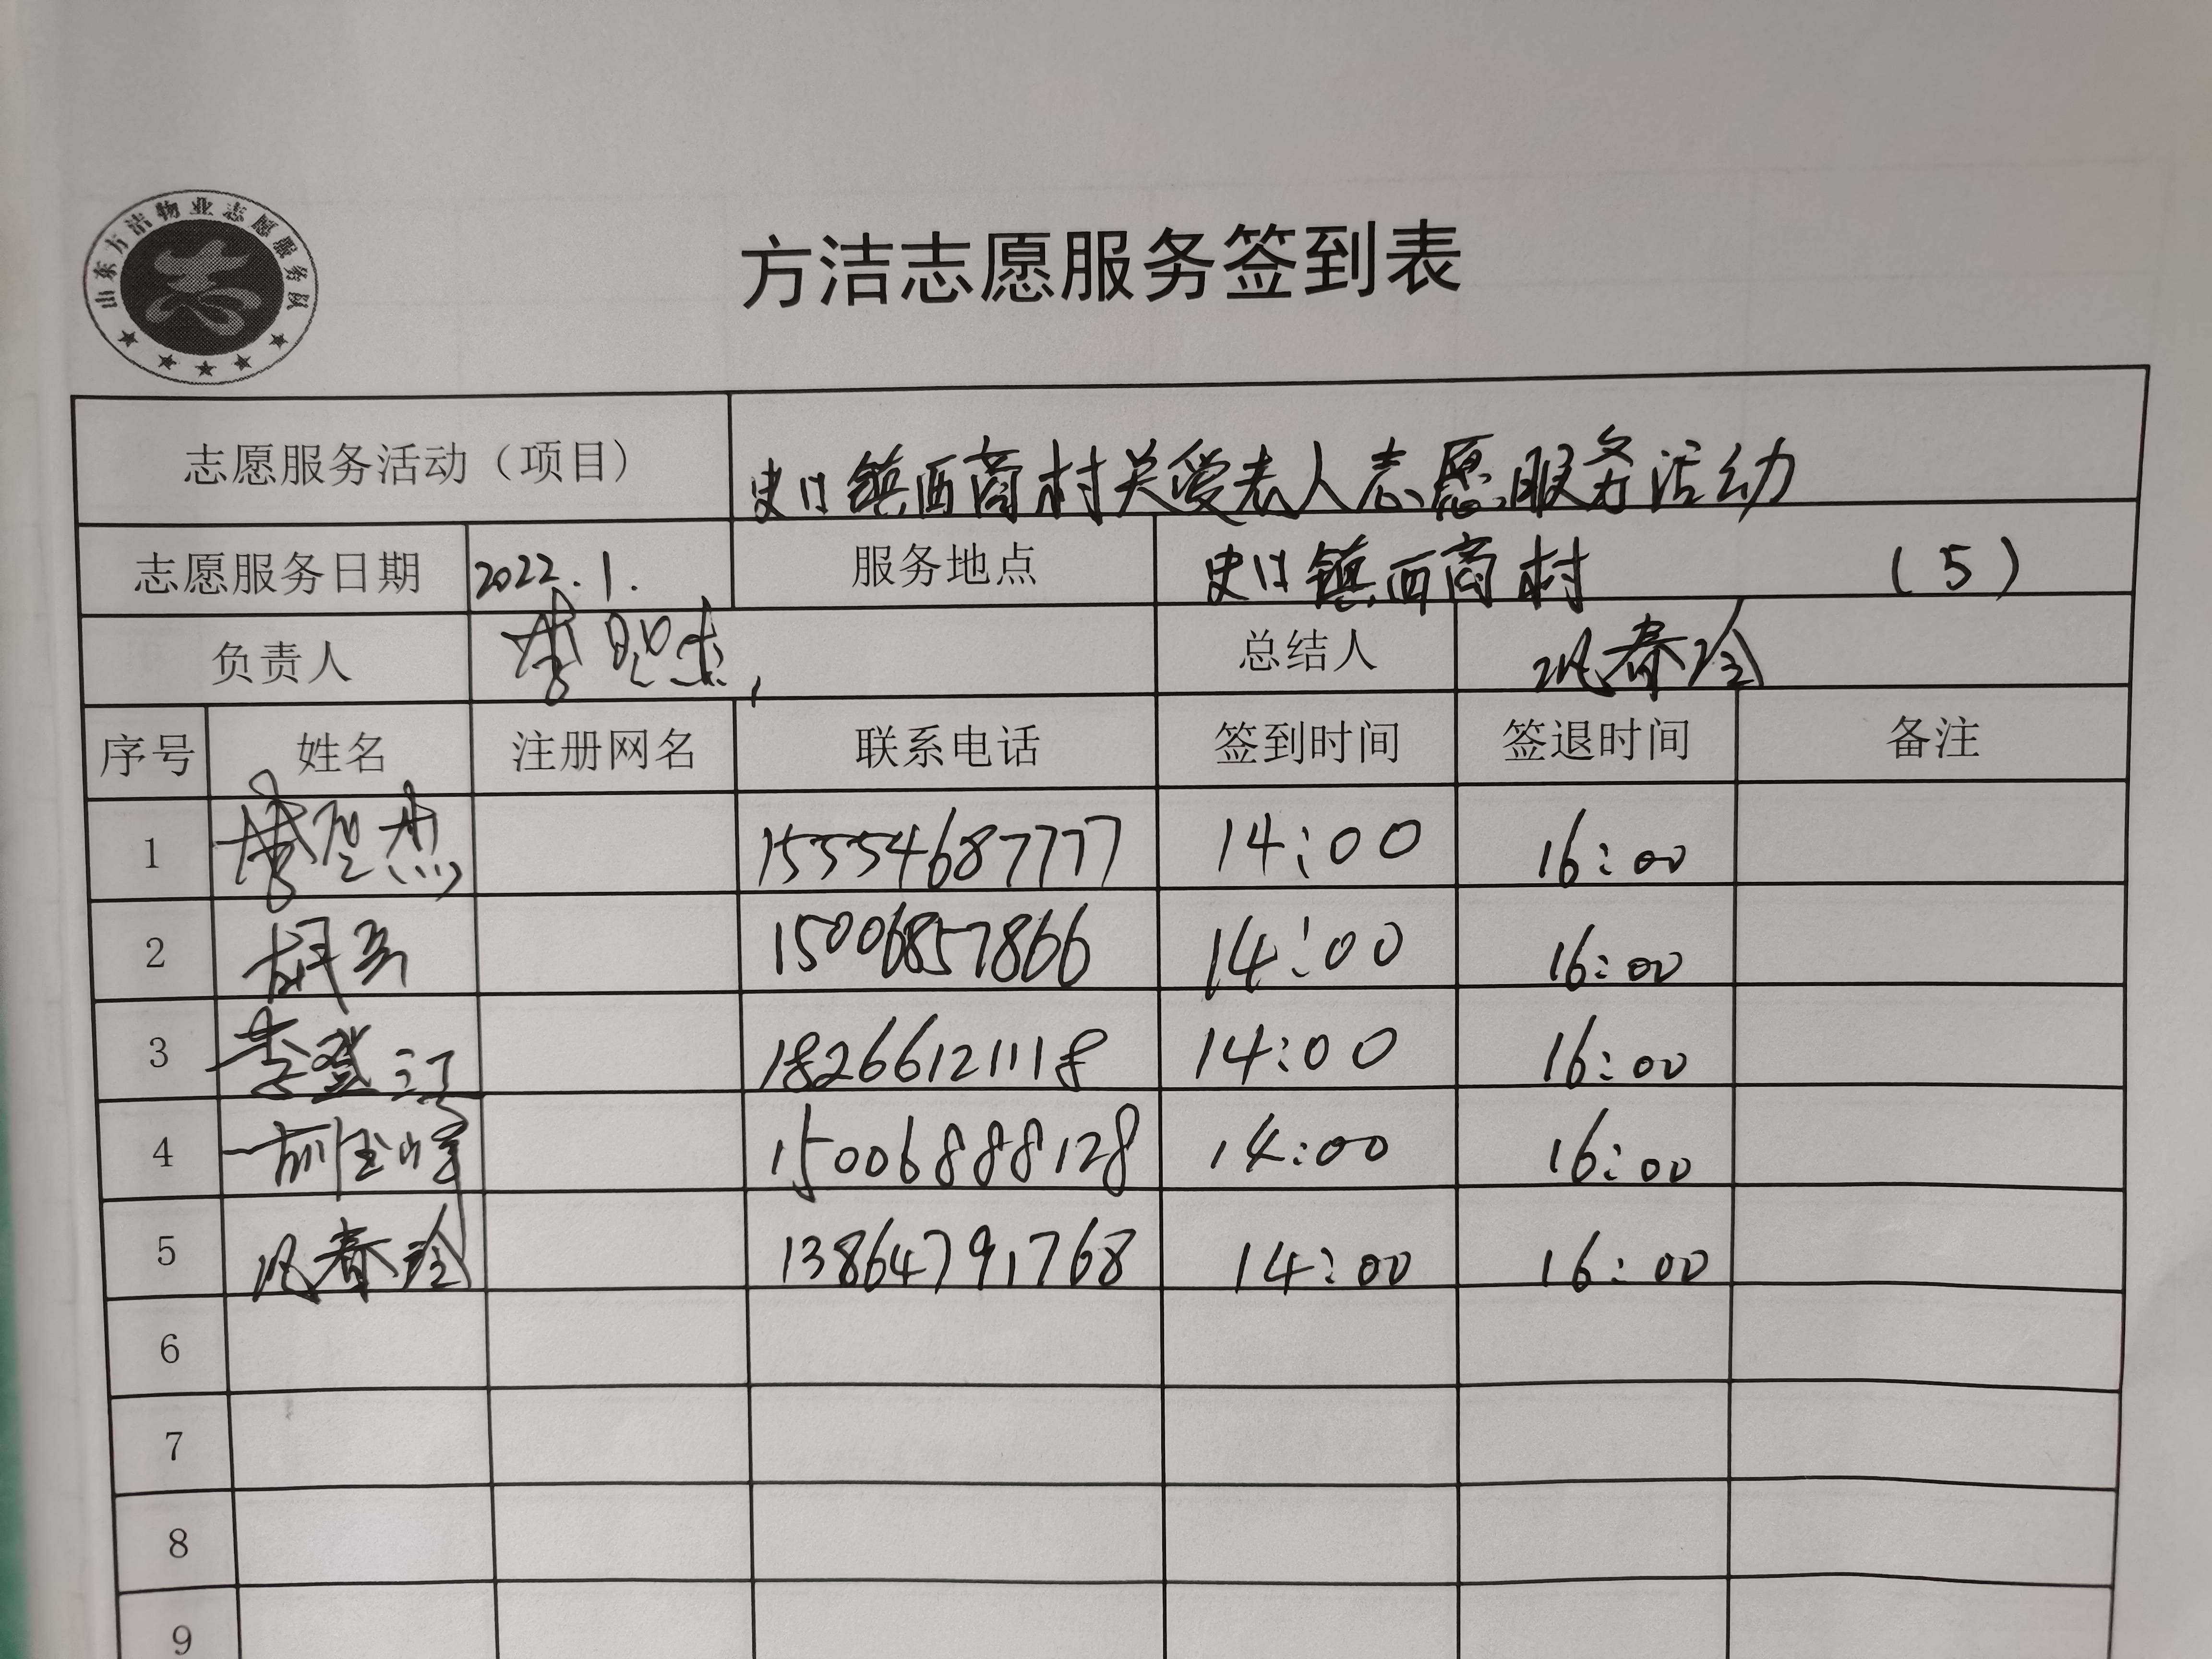 山东方洁物业志愿服务队
方洁志愿服务签到表
志愿服务活动（项目） 史口镇西商村关爱老人志愿服务活动
志愿服务日期 2022.1. 服务地点 史口镇西商村 （5）
负责人 总结人 巩春玲
序号 姓名 注册网名 联系电话 签到时间 签退时间 备注
1 15554687777 14:00 16:00
2 15006857866 14:00 16:00
3 李登江 18266121118 14:00 16:00
4 15006888128 14:00 16:00
5 巩春玲 13864791768 14:00 16:00
6
7
8
9